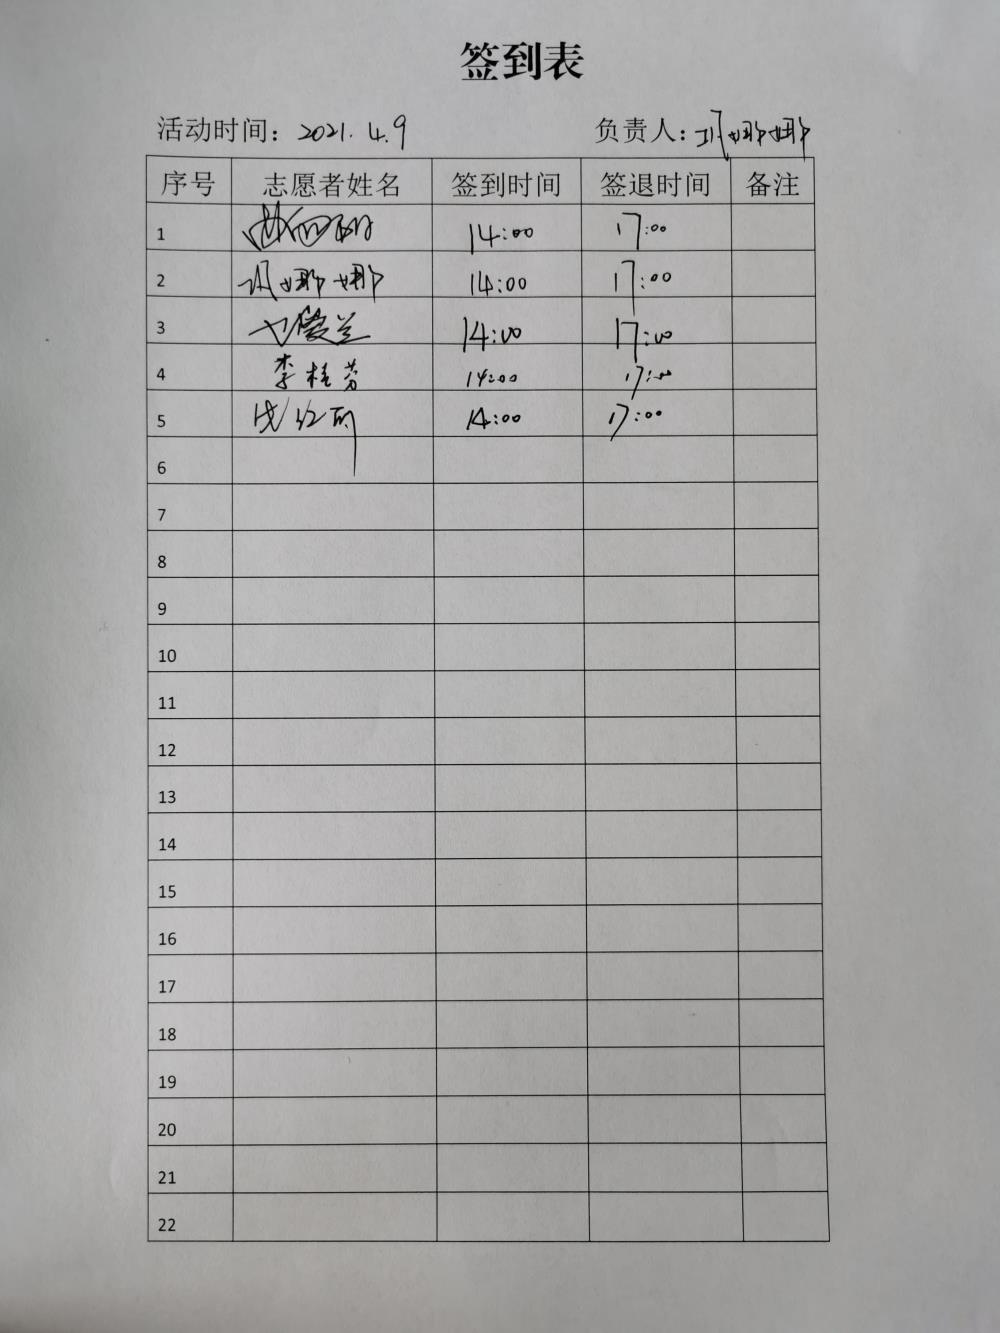 签到表
活动时间: 2021.4.9 负责人: 娜娜
序号 志愿者姓名 签到时间 签退时间 备注
1 14:00 17:00
2 娜娜 14:00 17:00
3 14:00 17:00
4 李桂芳 14:00 17:00
5 红丽 14:00 17:00
6
7
8
9
10
11
12
13
14
15
16
17
18
19
20
21
22